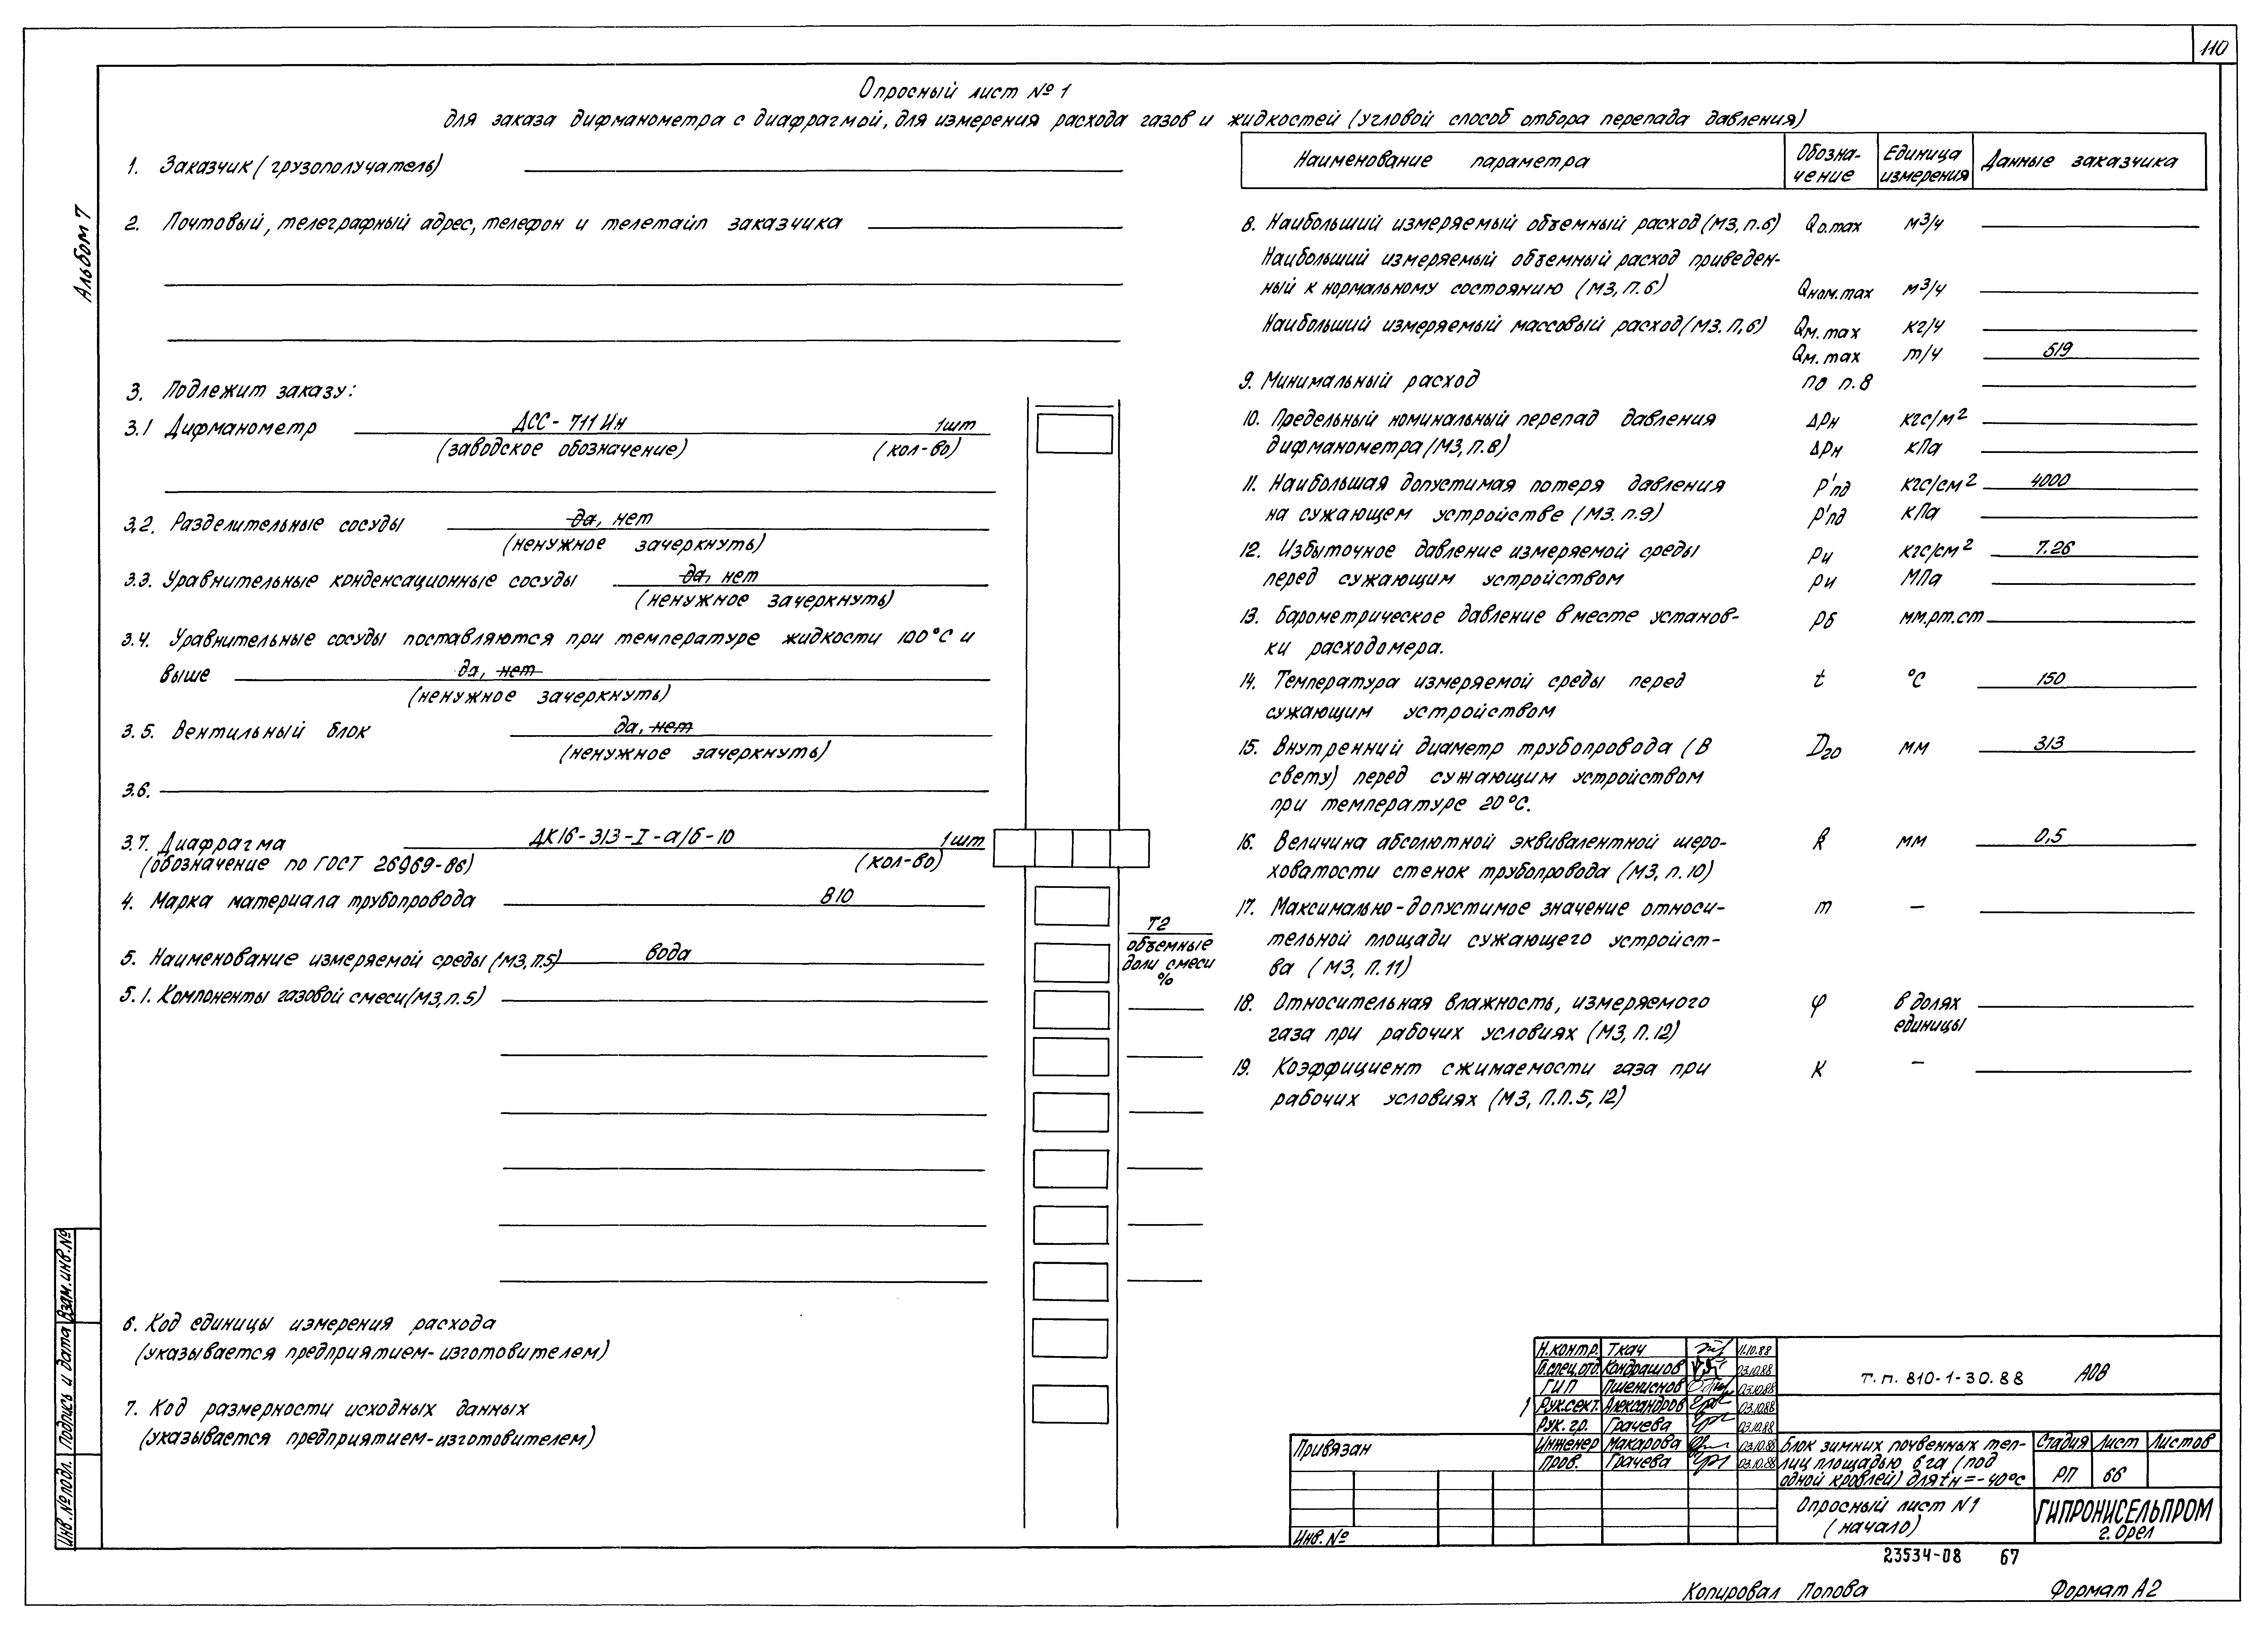 110
Опросный лист №1
для заказа дифманометра с диафрагмой, для измерения расхода газов и жидкостей (угловой способ отбора перепада давления)
Альбом 7
1. Заказчик (грузополучатель)
2. Почтовый, телеграфный адрес, телефон и телетайп заказчика
3. Подлежит заказу:
3.1 Дифманометр ДСС-711Ин 1шт
(заводское обозначение) (кол-во)
3.2. Разделительные сосуды да, нет
(ненужное зачеркнуть)
3.3. Уравнительные конденсационные сосуды да, нет
(ненужное зачеркнуть)
3.4. Уравнительные сосуды поставляются при температуре жидкости 100°С и
выше да, нет
(ненужное зачеркнуть)
3.5. Вентильный блок да, нет
(ненужное зачеркнуть)
3.6.
3.7. Диафрагма ДК16-313-I-а/б-10 1шт
(обозначение по ГОСТ 26969-86) (кол-во)
4. Марка материала трубопровода В10
5. Наименование измеряемой среды (МЗ, п.5) вода
5.1. Компоненты газовой смеси (МЗ, п.5)
Т2
объемные
доли смеси
%
6. Код единицы измерения расхода
(указывается предприятием-изготовителем)
7. Код размерности исходных данных
(указывается предприятием-изготовителем)
Наименование параметра Обозна- Единица Данные заказчика
чение измерения
8. Наибольший измеряемый объемный расход (МЗ, п.6) Qо.max м3/ч
Наибольший измеряемый объемный расход приведен-
ный к нормальному состоянию (МЗ, п.6) Qном.max м3/ч
Наибольший измеряемый массовый расход (МЗ. п,6) Qм.max кг/ч
Qм.max т/ч 519
9. Минимальный расход по п.8
10. Предельный номинальный перепад давления ΔPн кгс/м2
дифманометра (МЗ, п.8) ΔPн кПа
11. Наибольшая допустимая потеря давления P'пд кгс/см2 4000
на сужающем устройстве (МЗ. п.9) P'пд кПа
12. Избыточное давление измеряемой среды Pи кгс/см2 7.26
перед сужающим устройством Pи МПа
13. Барометрическое давление в месте установ- Pб мм.рт.ст
ки расходомера.
14. Температура измеряемой среды перед t °С 150
сужающим устройством
15. Внутренний диаметр трубопровода (в D20 мм 313
свету) перед сужающим устройством
при температуре 20°С.
16. Величина абсолютной эквивалентной шеро- k мм 0,5
ховатости стенок трубопровода (МЗ, п.10)
17. Максимально-допустимое значение относи- m –
тельной площади сужающего устройст-
ва (МЗ, п.11)
18. Относительная влажность, измеряемого φ в долях
газа при рабочих условиях (МЗ, п.12) единицы
19. Коэффициент сжимаемости газа при К –
рабочих условиях (МЗ, п.п.5, 12)
Взам. инв.№
Подпись и дата
Инв.№ подл.
Н.контр. Ткач 11.10.88
Гл.спец.отд. Кондрашов 03.10.88
ГИП Пшениснов 03.10.88
1 Рук.сект. Александров 03.10.88
Рук. гр. Грачева 03.10.88
Инженер Макарова 03.10.88
Пров. Грачева 03.10.88
Привязан
Инв. №
т.п. 810-1-30.88 АОВ
Блок зимних почвенных теп-
лиц площадью 6 га (под
одной кровлей) для tн=-40°С
Стадия Лист Листов
РП 66
Опросный лист N1
(начало)
ГИПРОНИСЕЛЬПРОМ
г. Орел
23534-08 67
Копировал Попова Формат А2